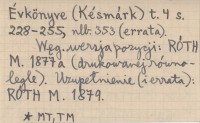 Évkönyve (Késmárk) t. 4 s.
228-255, nlb. 353 (errata).
Węg. wersja pozycji: RÓTH
M. 1877a (drukowanej równo-
legle). Uzupełnienie (i errata):
RÓTH M. 1879.
* MT, TM